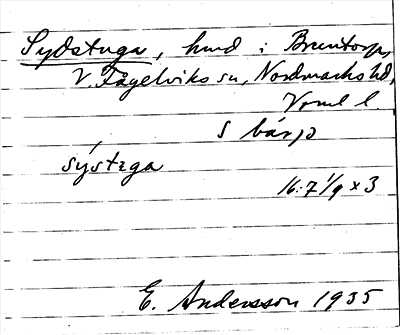 Sydstuga, hmd i Brentorp,
V. Fågelviks sn, Nordmarks hd,
Vrml l.
S bárp
sýstɐga
16:7 1/9 x 3
E. Andersson 1935